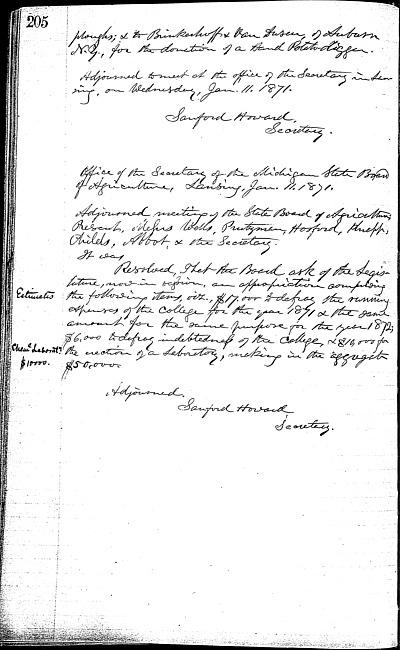 205
ploughs; & to Brinkerhoff & Van Dusen, of Auburn
N.Y., for the donation of a Hand Potato digger.
Adjourned to meet at the office of the Secretary in Lan-
sing, on Wednesday, Jan. 11. 1871.
Sanford Howard,
Secretary.
Office of the Secretary of the Michigan State Board
of Agriculture, Lansing, Jan. 11. 1871.
Adjourned meeting of the State Board of Agriculture
Present, Messrs Wells, Prutzman, Hosford,
Childs, Abbot, & the Secretary.
It was
Resolved, That the Board ask of the Legis-
lature, now in session, an appropriation comprising
the following items, viz. $17,000 to defray the running
expenses of the College for the year 1871 & the same
amount for the same purpose for the year 1872;
$6,000 to defray indebtedness of the College, & $10,000 for
the erection of a Laboratory, making in the aggregate
$50,000.
Estimates
Chem. Laborat'y
$10000.
Adjourned.
Sanford Howard
Secretary.